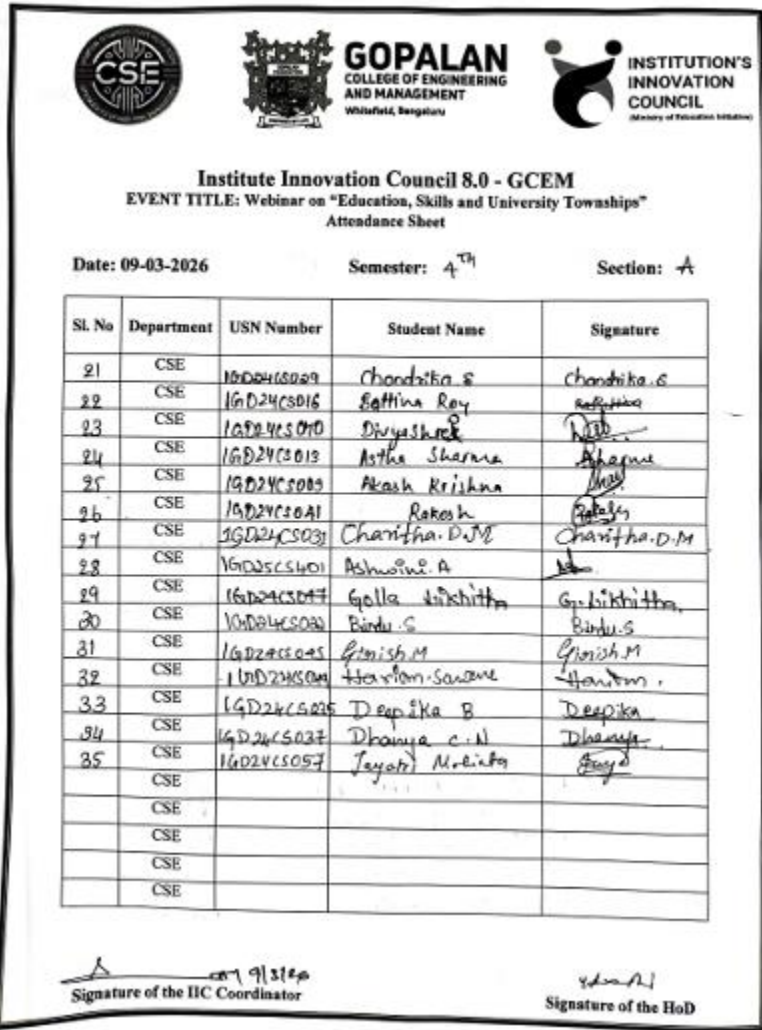 CSE
GOPALAN
COLLEGE OF ENGINEERING
AND MANAGEMENT
Whitefield, Bengaluru
INSTITUTION'S
INNOVATION
COUNCIL
(Ministry of Education Initiative)
Institute Innovation Council 8.0 - GCEM
EVENT TITLE: Webinar on “Education, Skills and University Townships”
Attendance Sheet
Date: 09-03-2026 Semester: 4Th Section: A
Sl. No Department USN Number Student Name Signature
21 CSE 1GD24CS029 Chandrika.S Chandrika.S
22 CSE 1GD24CS016 Roy
23 CSE 1GD24CS040 Divyashree
24 CSE 1GD24CS013 Astha Sharma
25 CSE 1GD24CS009 Akash Krishna
26 CSE 1GD24CS0A1 Rakesh
27 CSE 1GD24CS031 Charitha.D.M Charitha.D.M
28 CSE 1GD25CS401 Ashwini.A
29 CSE 1GD24CS047 Golla Likhitha G.Likhitha
30 CSE Bindu.S Bindu.S
31 CSE 1GD24CS045 Girish.M Girish.M
32 CSE Hariom
33 CSE 1GD24CS035 Deepika B Deepika
34 CSE 1GD24CS037 Dhanya C.N Dhanya
35 CSE 1GD24CS057 Jayatri
CSE
CSE
CSE
CSE
CSE
9/3/26
Signature of the IIC Coordinator
Signature of the HoD